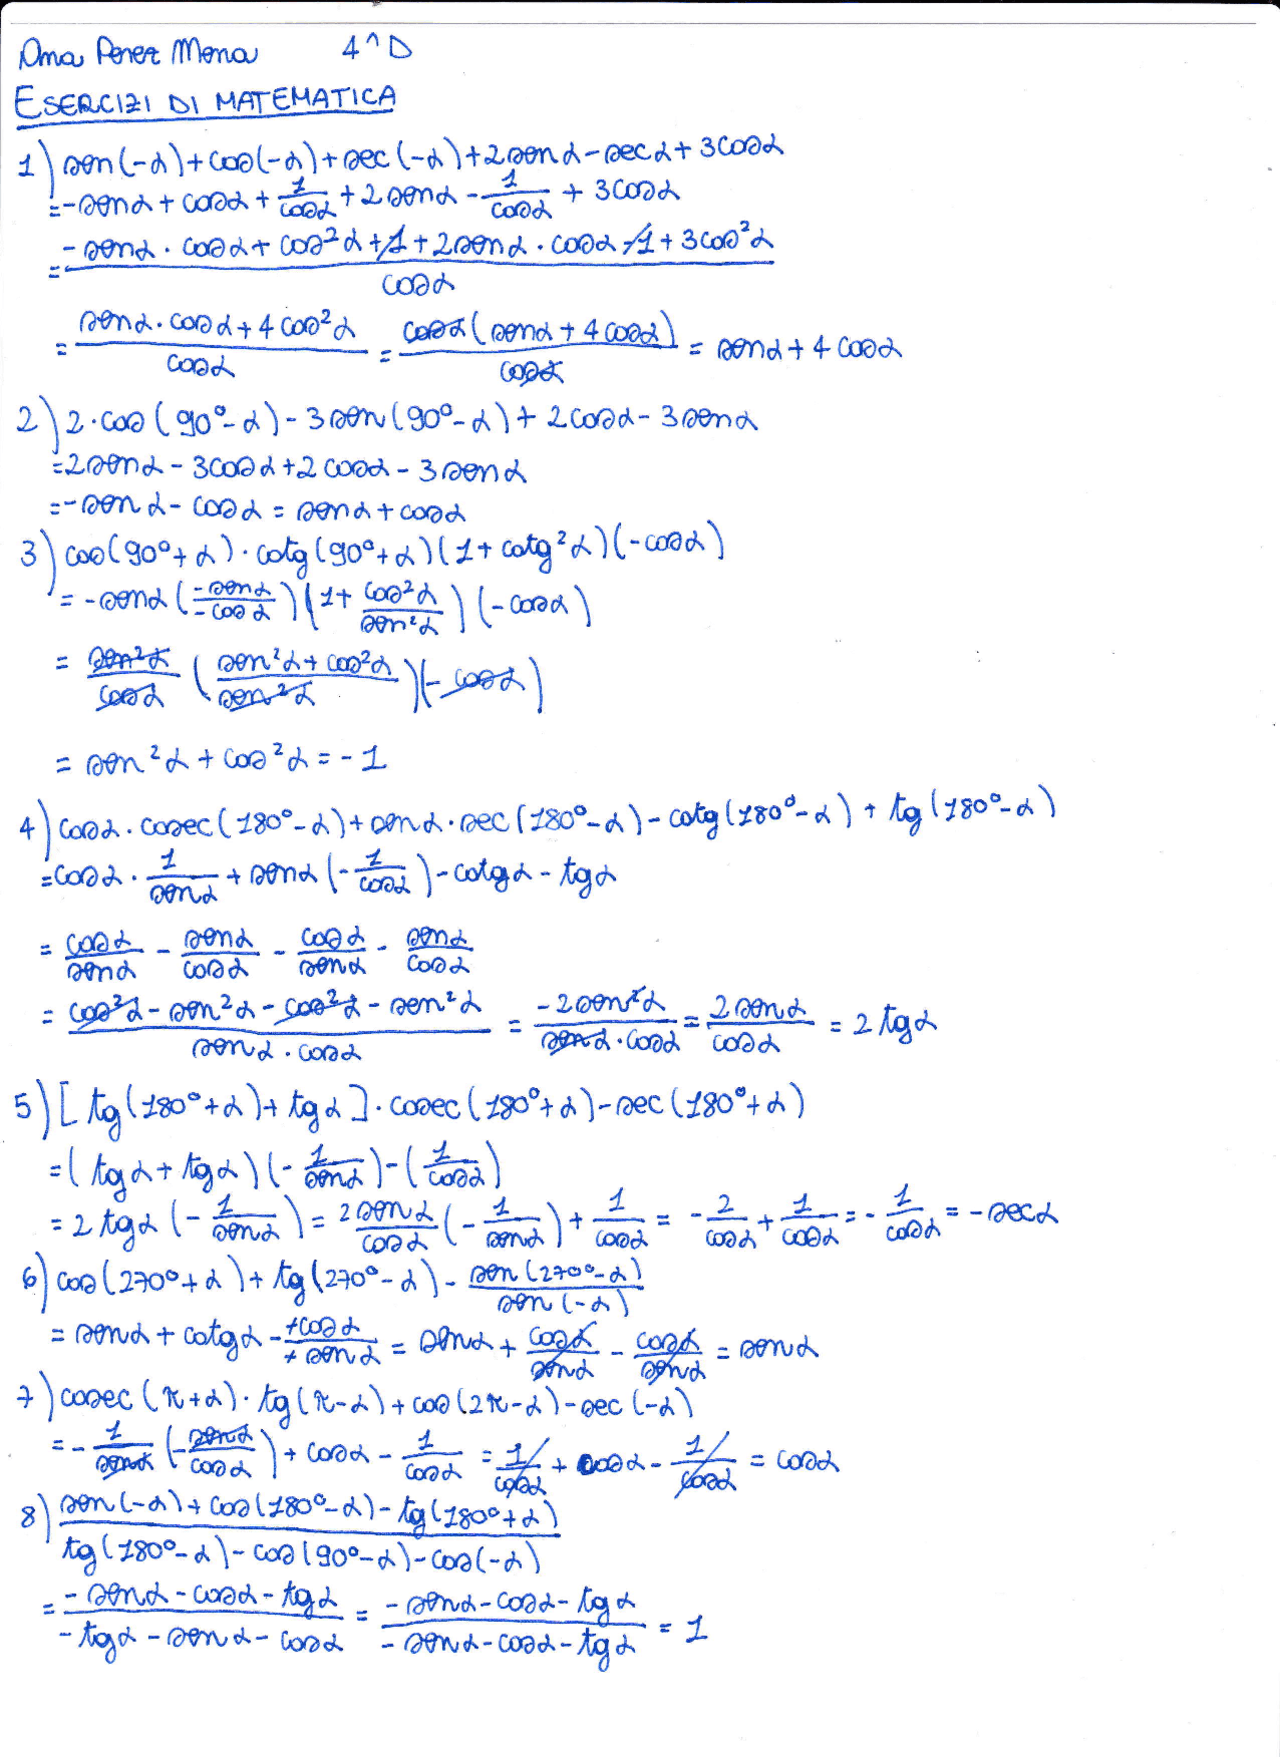 Ana Perez Mena 4^D
ESERCIZI DI MATEMATICA
1) sen(-α)+cos(-α)+sec(-α)+2senα-secα+3cosα
=-senα+cosα+1/cosα+2senα-1/cosα+3cosα
=(-senα·cosα+cos²α+1+2senα·cosα-1+3cos²α)/cosα
=(senα·cosα+4cos²α)/cosα=cosα(senα+4cosα)/cosα=senα+4cosα
2) 2·cos(90°-α)-3sen(90°-α)+2cosα-3senα
=2senα-3cosα+2cosα-3senα
=-senα-cosα=senα+cosα
3) cos(90°+α)·cotg(90°+α)(1+cotg²α)(-cosα)
=-senα(-senα/-cosα)(1+cos²α/sen²α)(-cosα)
=sen²α/cosα((sen²α+cos²α)/sen²α)(-cosα)
=sen²α+cos²α=-1
4) cosα·cosec(180°-α)+senα·sec(180°-α)-cotg(180°-α)+tg(180°-α)
=cosα·1/senα+senα(-1/cosα)-cotgα-tgα
=cosα/senα-senα/cosα-cosα/senα-senα/cosα
=(cos²α-sen²α-cos²α-sen²α)/(senα·cosα)=-2sen²α/(senα·cosα)=2senα/cosα=2tgα
5) [tg(180°+α)+tgα]·cosec(180°+α)-sec(180°+α)
=(tgα+tgα)(-1/senα)-(1/cosα)
=2tgα(-1/senα)=2senα/cosα(-1/senα)+1/cosα=-2/cosα+1/cosα=-1/cosα=-secα
6) cos(270°+α)+tg(270°-α)-sen(270°-α)/sen(-α)
=senα+cotgα-+cosα/+senα=senα+cosα/senα-cosα/senα=senα
7) cosec(π+α)·tg(π-α)+cos(2π-α)-sec(-α)
=-1/senα(-senα/cosα)+cosα-1/cosα=1/cosα+cosα-1/cosα=cosα
8) (sen(-α)+cos(180°-α)-tg(180°+α))/(tg(180°-α)-cos(90°-α)-cos(-α))
=(-senα-cosα-tgα)/(-tgα-senα-cosα)=(-senα-cosα-tgα)/(-senα-cosα-tgα)=1